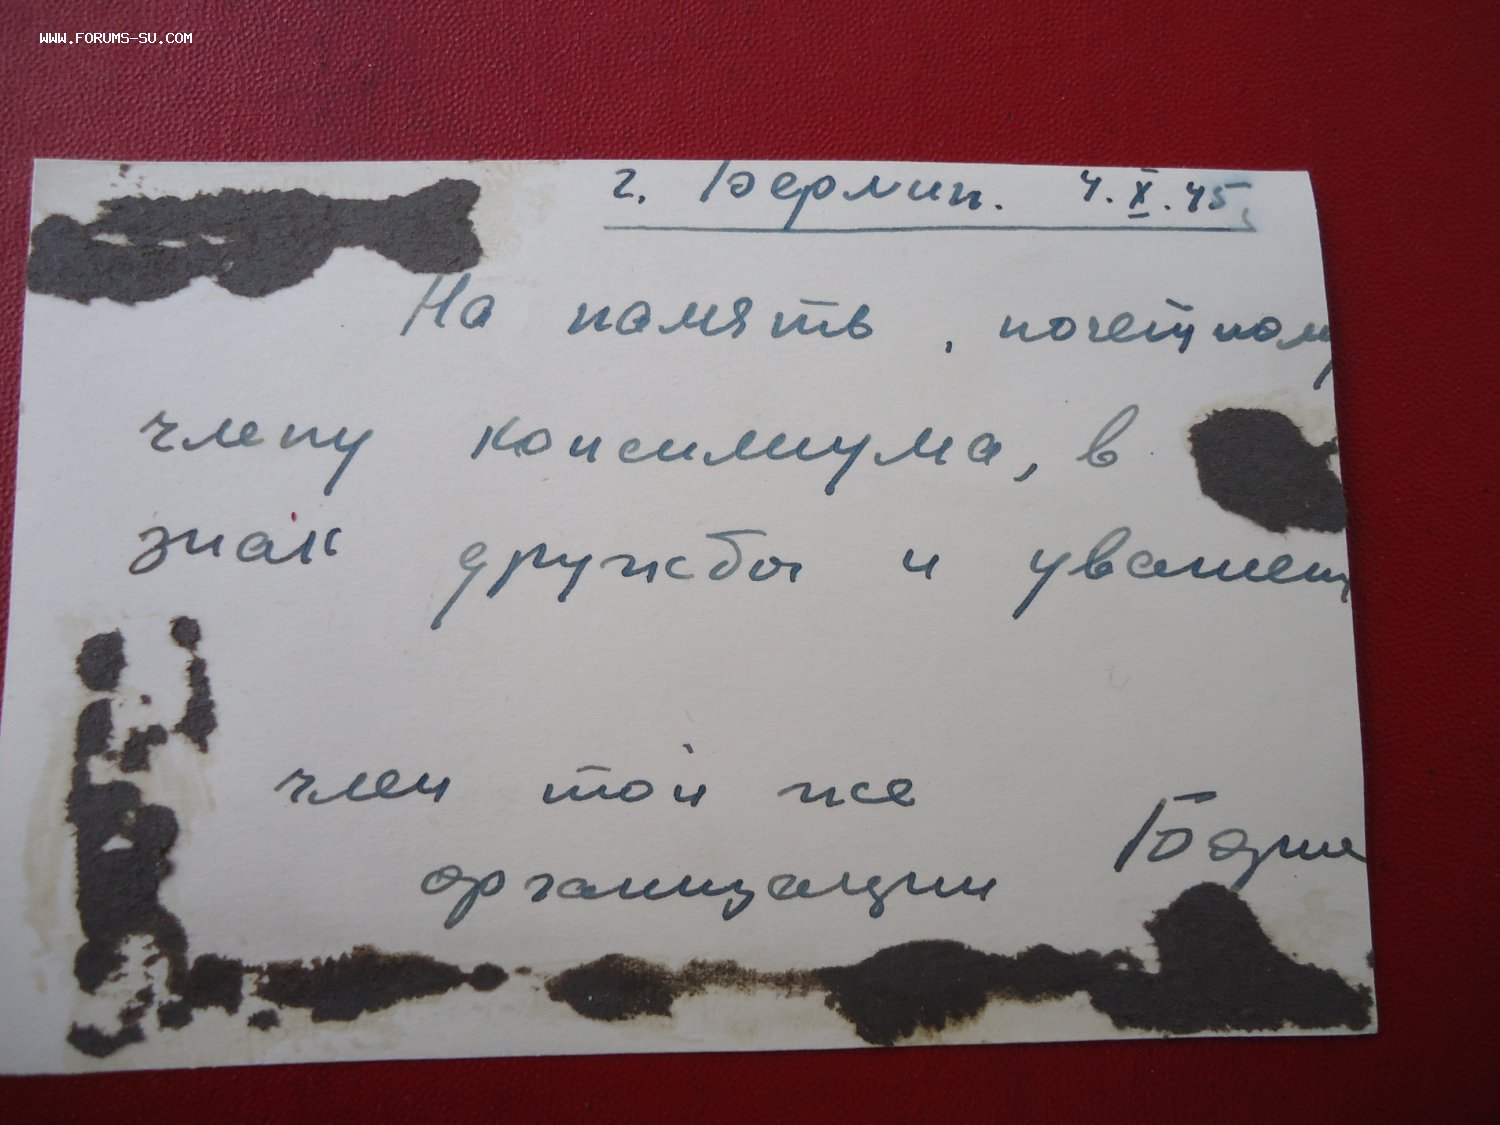 WWW.FORUMS-SU.COM
г. Берлин. 4.X.45
На память, почетному
члену консилиума, в
знак дружбы и уважен
член той же
организации